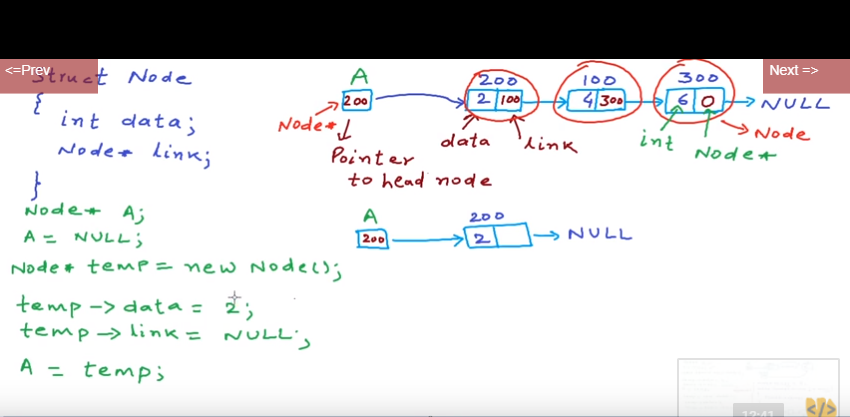 <=Prev
Next =>
Struct Node
{
int data;
Node* link;
}
Node* A;
A = NULL;
Node* temp = new Node();
temp -> data = 2;
temp -> link = NULL;
A = temp;
A
200
Node*
Pointer
to head node
200
2 100
data
link
100
4 300
300
6 0
NULL
int
Node*
Node
A
200
200
2
NULL
12:41
</>